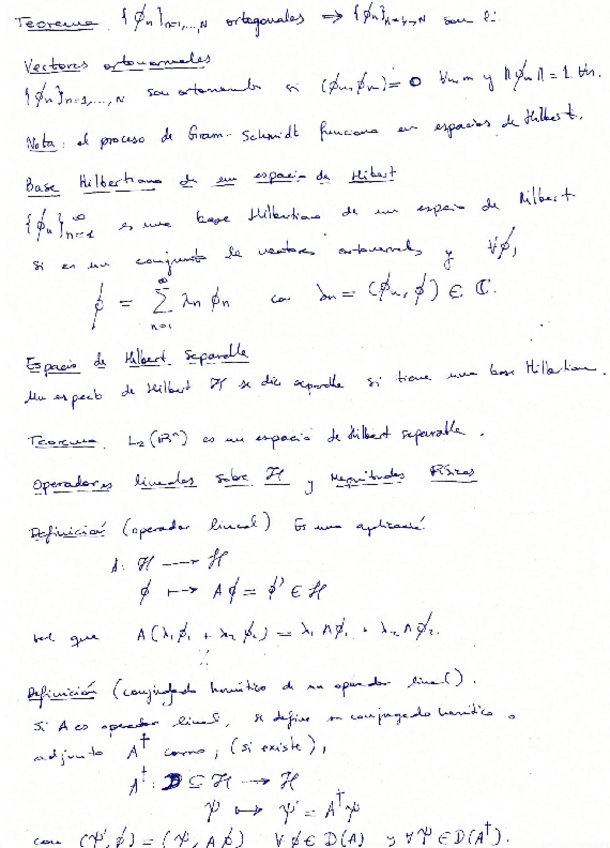 Teorema. {φn}n=1,...,N ortogonales ⟹ {φn}n=1,...,N son li.
Vectores ortonormales
{φn}n=1,...,N son ortonormales si (φn, φm) = 0 ∀n,m y ‖φn‖ = 1 ∀n.
Nota: el proceso de Gram-Schmidt funciona en espacios de Hilbert.
Base Hilbertiana de un espacio de Hilbert
{φn}n=1^∞ es una base Hilbertiana de un espacio de Hilbert
si es un conjunto de vectores ortonormales y ∀φ,
φ = ∑n=1^∞ λn φn con λn = (φn, φ) ∈ ℂ.
Espacio de Hilbert Separable
Un espacio de Hilbert ℋ se dice separable si tiene una base Hilbertiana.
Teorema. L2(ℝ^n) es un espacio de Hilbert separable.
Operadores lineales sobre ℋ y Magnitudes Físicas
Definición (operador lineal) Es una aplicación
A: ℋ ⟶ ℋ
φ ↦ Aφ = φ' ∈ ℋ
tal que A(λ1φ1 + λ2φ2) = λ1Aφ1 + λ2Aφ2.
Definición (conjugado hermítico de un operador lineal).
Si A es operador lineal, se define su conjugado hermítico o
adjunto A† como, (si existe),
A†: D ⊆ ℋ ⟶ ℋ
ψ ↦ ψ' = A†ψ
con (ψ', φ) = (ψ, Aφ) ∀φ ∈ D(A) y ∀ψ ∈ D(A†).